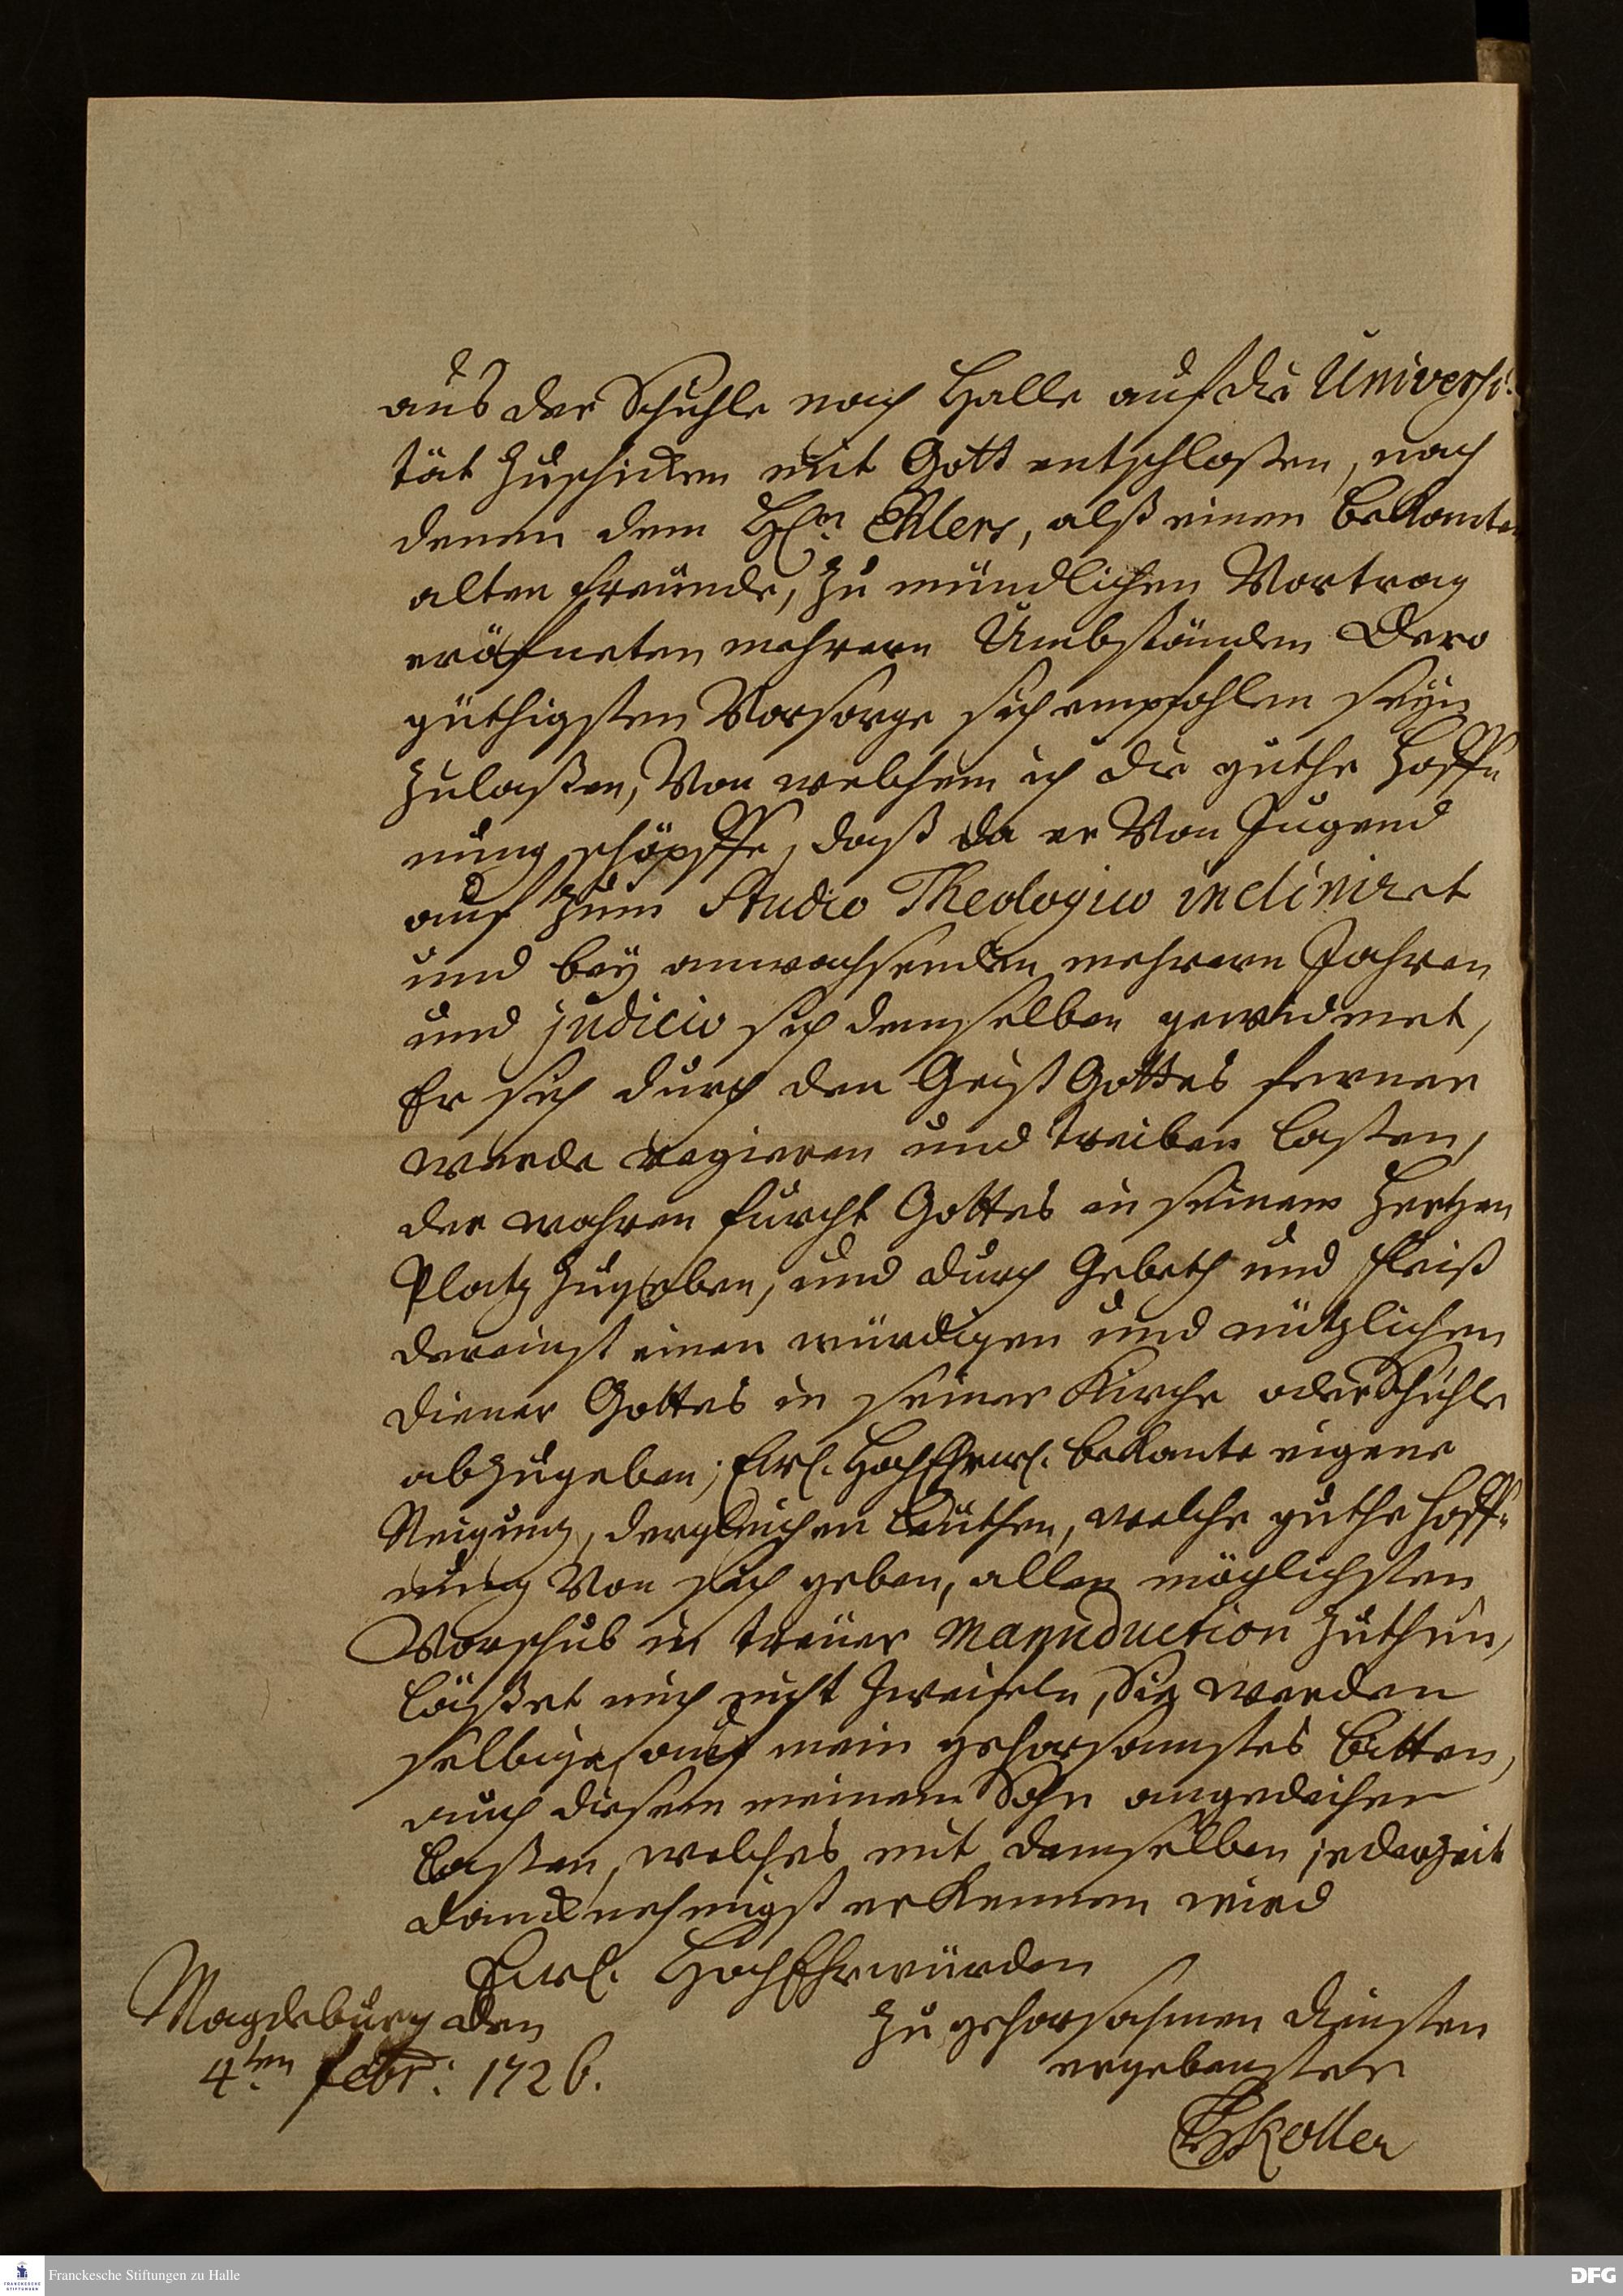 aus der Schuhle nach Halle auf die Universi-
tät zuschicken mit Gott entschloßen, nach
denen dem HEn. Ehlers, alß einen bekanten
alten freunde, zu mündlichen Vortrag
eröfneten mehrern Umbständen Dero
güthigsten Vorsorge sich empfohlen seyn
zulaßen, Von welchem ich die guthe Hoff-
nung schöpffe, daß da er Von Jugend
auf zum Studio Theologico incliniret
und bey anwachsenden mehrern Jahren
und judicio sich demselben gewidmet,
Er sich durch den Geist Gottes ferner
werde regieren und treiben laßen,
der wahren furcht Gottes in seinem Hertzen
Platz zugeben, und durch Gebeth und fleiß
dereinst einen würdigen und nützlichen
diener Gottes in seiner Kirche oder Schuhle
abzugeben; Ewl. HochEhrwl. bekante eigene
Neigung, dergleichen Leuthen, welche guthe Hoff-
nung Von sich geben, allen möglichsten
Vorschub in treuer Manuduction zuthun,
läßet mich nicht zweifeln, Sie werden
selbige, auf mein gehorsamstes bitten,
auch diesem meinem Sohn angedeihen
laßen, welches mit demselben jederzeit
dancknehmigst erkennen wird
Ewl. HochEhrwürden
Magdeburg den
4ten Febr: 1726.
zu gehorsahmen diensten
ergebenster
Koller
Franckesche Stiftungen zu Halle
FRANCKESCHE
STIFTUNGEN
DFG